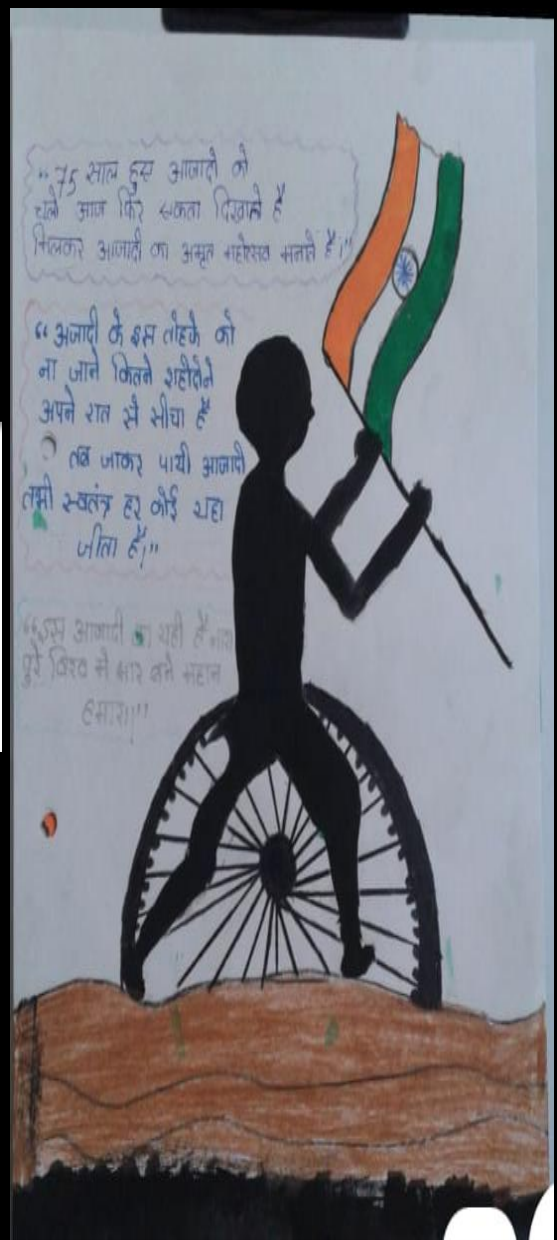 "75 साल हुए आजादी को
चलो आज फिर एकता दिखाते है
मिलकर आजादी का अमृत महोत्सव मनाते है।"
"अजादी के इस तोहफे को
ना जाने कितने शहीदोने
अपने रात से सीचा है
तब जाकर पायी आजादी
तभी स्वतंत्र हर कोई यहा
जीता है।"
"इस आजादी का यही है
पुरे विश्व मे बने महान
हमारा।"